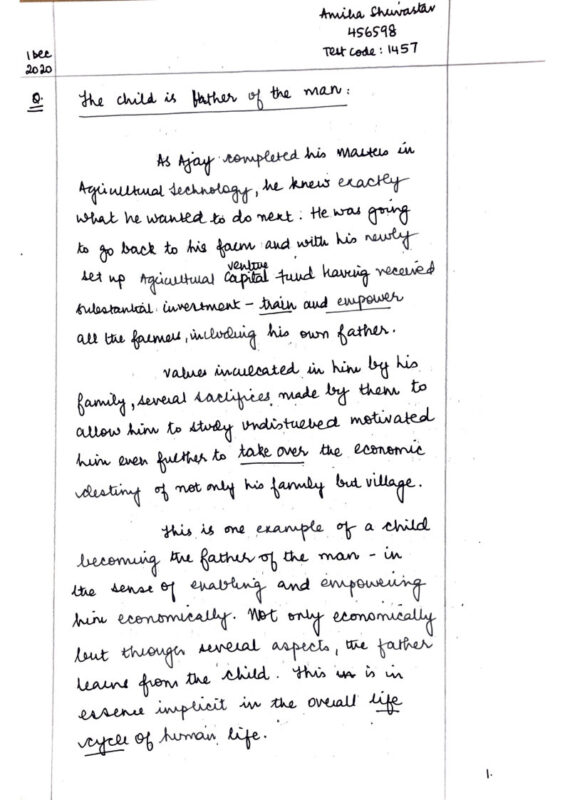 Amiha Shuvastav
456598
Test Code: 1457
1 Dec
2020
Q. The child is father of the man:
As Ajay completed his masters in
Agricultural technology, he knew exactly
what he wanted to do next. He was going
to go back to his farm and with his newly
venture
set up Agricultural Capital fund having received
substantial investment - train and empower
all the farmers, including his own father.
Values inculcated in him by his
family, several sacrifices made by them to
allow him to study undisturbed motivated
him even further to take over the economic
destiny of not only his family but village.
This is one example of a child
becoming the father of the man - in
the sense of enabling and empowering
him economically. Not only economically
but through several aspects, the father
learns from the child. This is in
essence implicit in the overall life
cycle of human life.
1.